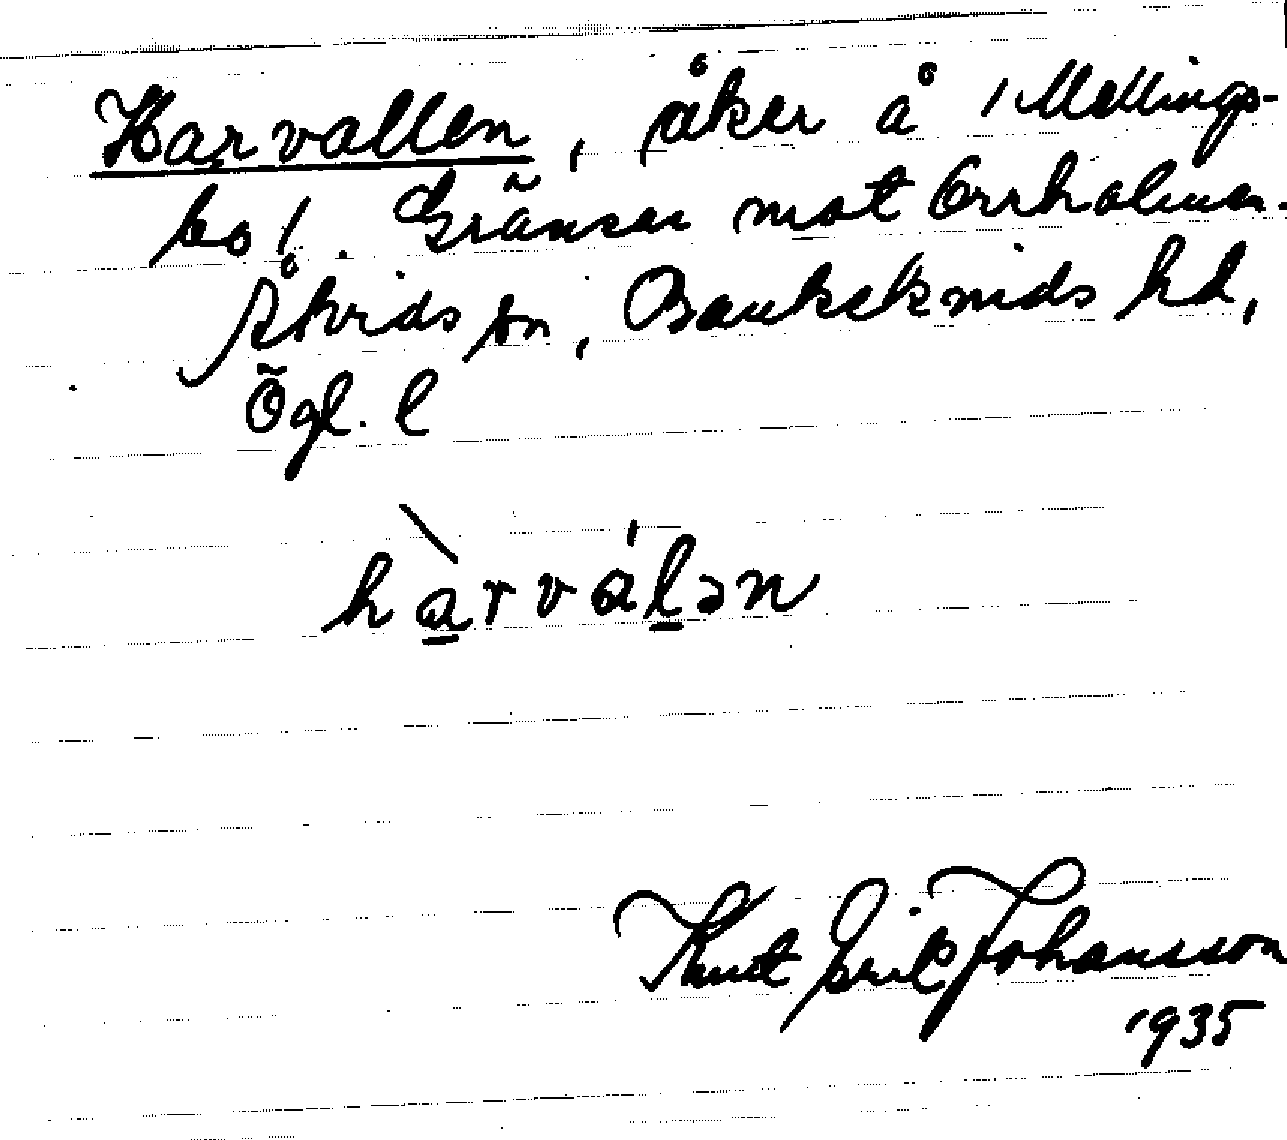 Harvallen, åker å /Mellings-
bo/. Gränsar mot Orrholmen.
Åtvids sn, Bankekinds hd,
Ögl. l
hàrválən
Knut Erik Johansson
1935